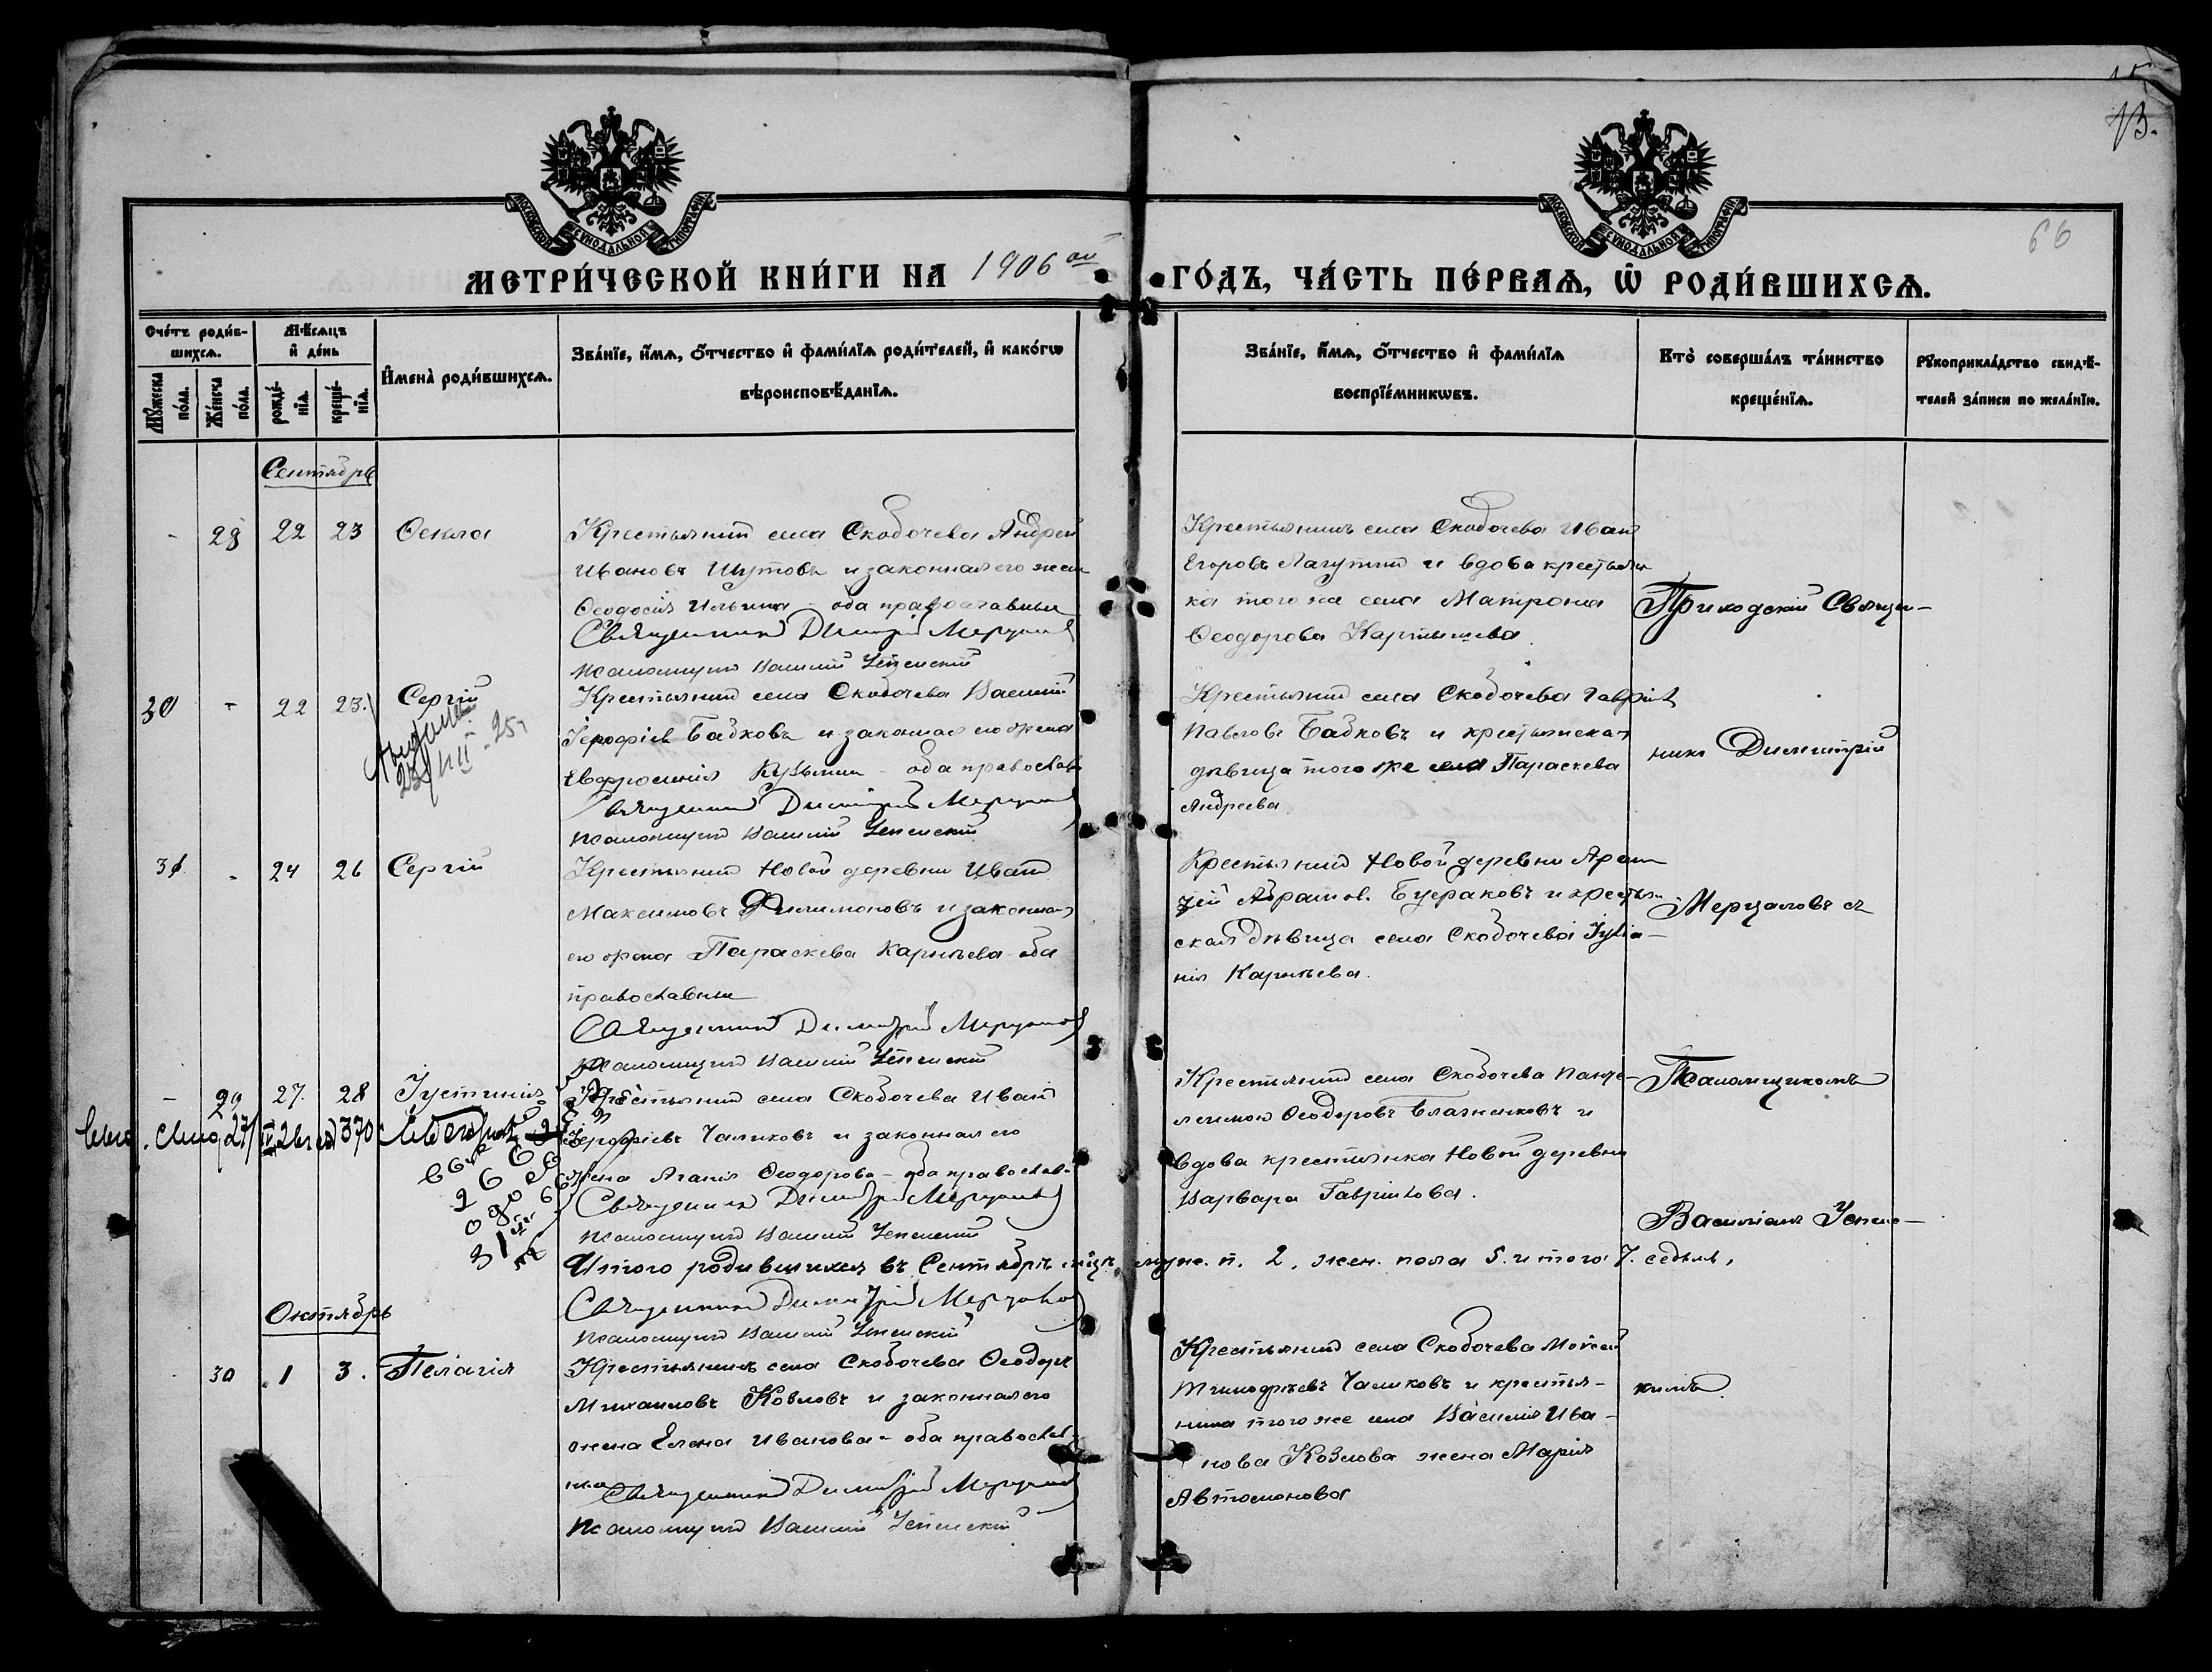 15
13.
66
МОСКОВСКОЙ СѴНОДАЛЬНОЙ ТИПОГРАФІИ
МОСКОВСКОЙ СѴНОДАЛЬНОЙ ТИПОГРАФІИ
МЕТРИ́ЧЕСКОЙ КНИ́ГИ НА 1906 ой ГО́ДЪ, ЧА́СТЬ ПЕ́РВАѦ, Ѿ РОДИ́ВШИХСѦ.
Сче́тъ роди́в-
шихсѧ.
Мꙋ́жеска по́ла.
Же́нска по́ла.
Мѣ́сѧцъ
и҆ де́нь
рожде́-
нїѧ.
креще́-
нїѧ.
И҆мена̀ роди́вшихсѧ.
Зва́нїе, и҆́мѧ, ѻ҆́тчество и҆ фами́лїѧ роди́телей, и҆ како́гѡ
вѣроисповѣ́данїѧ.
Зва́нїе, и҆́мѧ, ѻ҆́тчество и҆ фами́лїѧ
воспрїе́мникѡвъ.
Кто̀ соверша́лъ та́инство
креще́нїѧ.
Рꙋкоприкла́дство свидѣ́-
телей за́писи по жела́нїю.
Сентябрь
- 28 22 23 Ѳекла
Крестьянинъ села Скобочева Андрей
Ивановъ Шутовъ и законная его жена
Ѳеодосія Ильина - оба православные
Священникъ Димитрій Мерцаловъ
Псаломщикъ Василій Успенскій
Крестьянинъ села Скобочева Иванъ
Егоровъ Лагутинъ и вдова крестьян
ка того же села Матрона
Ѳеодорова Картышева.
Приходскій Священ-
30 - 22 23. Сергій
25
Крестьянинъ села Скобочева Василій
Іерофіев Бабковъ и законная его жена
Евфросинія Кузьмина - оба православ
Священникъ Димитрій Мерцаловъ
Псаломщикъ Василій Успенскій
Крестьянинъ села Скобочева Гавріил
Павловъ Бабковъ и крестьянская
дѣвица того же села Параскева
Андреева.
никъ Димитрій
31 - 24 26 Сергій
Крестьянинъ Новой деревни Иванъ
Максимовъ Филимоновъ и законная
его жена Параскева Карнѣева - оба
православные
Священникъ Димитрій Мерцаловъ
Псаломщикъ Василій Успенскій
Крестьянинъ Новой деревни
Абрамов. Бусраковъ и крестьян
ская дѣвица села Скобочева Іуліа-
нія Карнѣева.
Мерцаловъ съ
- 29 27. 28 Іустинія
370
Крестьянинъ села Скобочева Иванъ
Іерофіевъ Чаликовъ и законная его
жена Агапія Ѳеодорова - оба православ.
Священникъ Димитрій Мерцаловъ
Псаломщикъ Василій Успенскій
Крестьянинъ села Скобочева Панте-
леимонъ Ѳеодоровъ и
вдова крестьянка Новой деревни
Варвара Гавріилова.
Псаломщикомъ
Василіемъ Успенс-
Итого родившихся въ Сентябрѣ мѣцѣ муж. п. 2, жен. пола 5. итого 7. седьмъ,
Священникъ Димитрій Мерцаловъ
Псаломщикъ Василій Успенскій
Октябрь
30 1 3. Пелагія
Крестьянинъ села Скобочева Ѳеодоръ
Михаиловъ Козловъ и законная его
жена Елена Иванова - оба православ-
ные
Священникъ Димитрій Мерцаловъ
Псаломщикъ Василій Успенскій
Крестьянинъ села Скобочева Моисей
Тимофѣевъ Чаликовъ и крестья-
нина того же села Василія Ива-
нова Козлова жена Марія
Автомонова
кимъ.